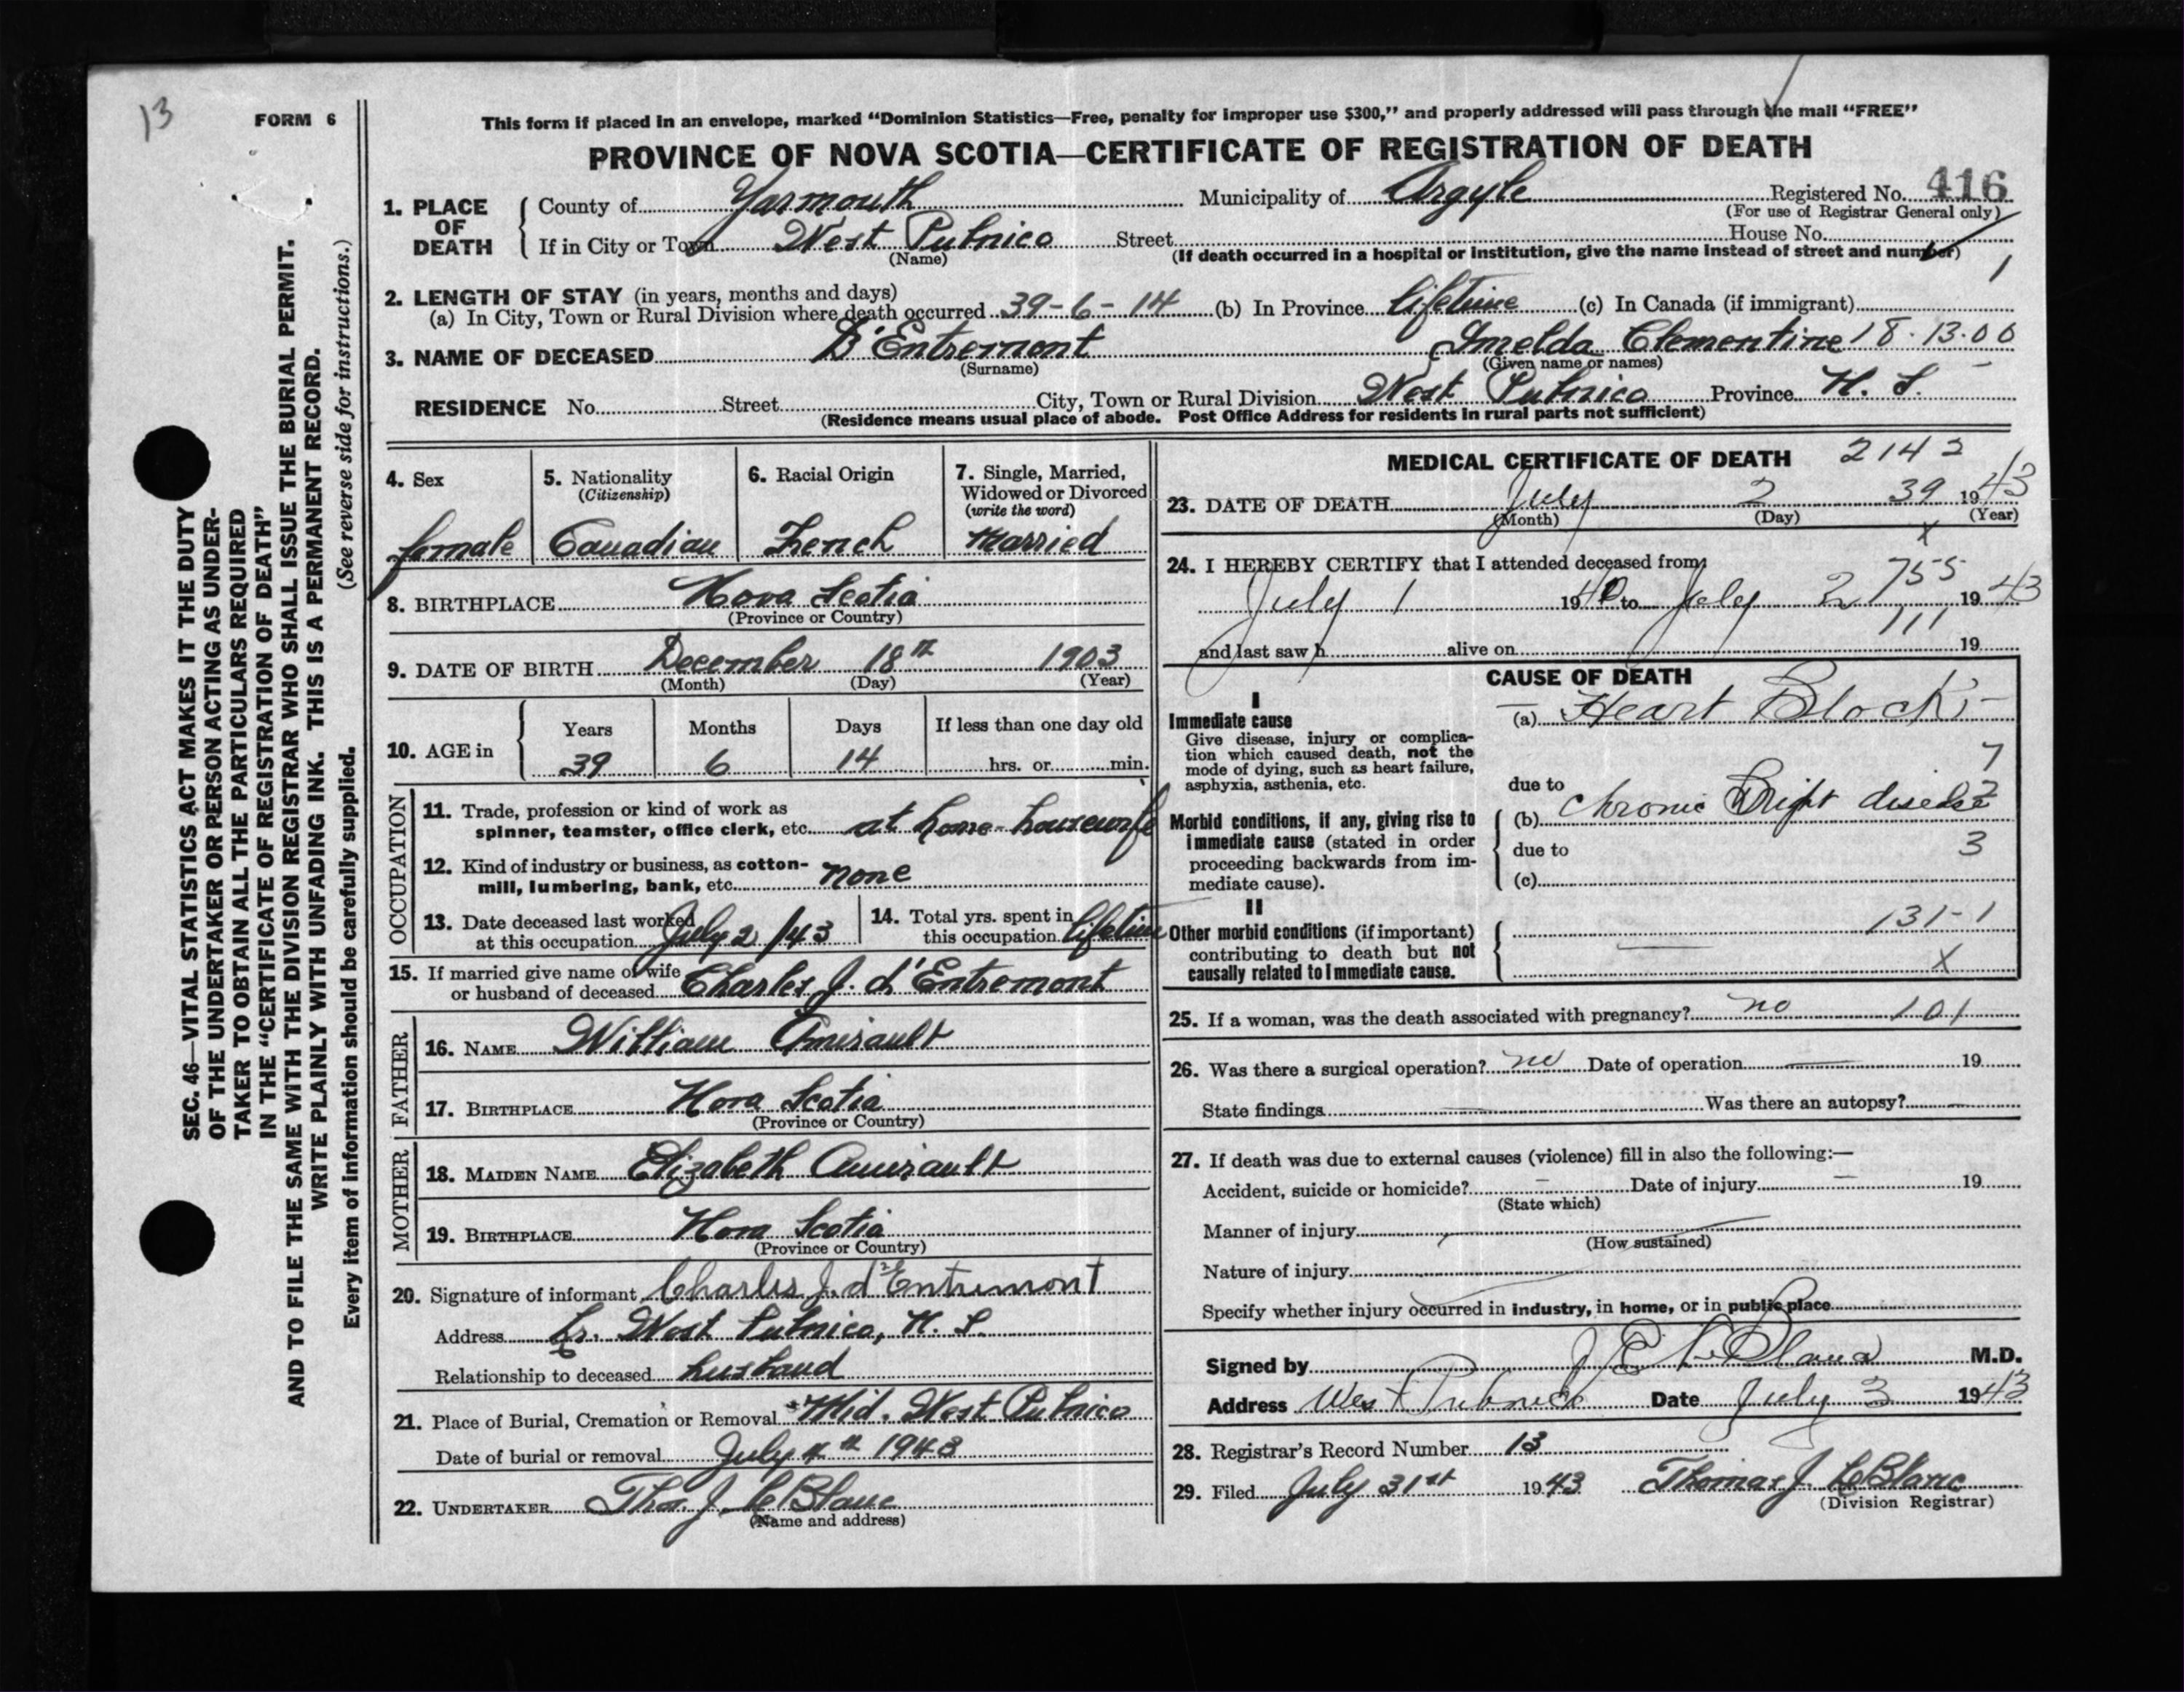 13
FORM 6
This form if placed in an envelope, marked "Dominion Statistics—Free, penalty for improper use $300," and properly addressed will pass through the mail "FREE"
PROVINCE OF NOVA SCOTIA—CERTIFICATE OF REGISTRATION OF DEATH
1. PLACE OF DEATH County of Yarmouth Municipality of Argyle Registered No. 416
(For use of Registrar General only)
If in City or Town West Pubnico Street House No.
(Name) (If death occurred in a hospital or institution, give the name instead of street and number)
1
2. LENGTH OF STAY (in years, months and days)
(a) In City, Town or Rural Division where death occurred 39-6-14 (b) In Province lifetime (c) In Canada (if immigrant)
3. NAME OF DECEASED D'Entremont Imelda Clementine 18.13.00
(Surname) (Given name or names)
RESIDENCE No. Street City, Town or Rural Division West Pubnico Province N. S.
(Residence means usual place of abode. Post Office Address for residents in rural parts not sufficient)
SEC. 46—VITAL STATISTICS ACT MAKES IT THE DUTY
OF THE UNDERTAKER OR PERSON ACTING AS UNDER-
TAKER TO OBTAIN ALL THE PARTICULARS REQUIRED
IN THE "CERTIFICATE OF REGISTRATION OF DEATH"
AND TO FILE THE SAME WITH THE DIVISION REGISTRAR WHO SHALL ISSUE THE BURIAL PERMIT.
WRITE PLAINLY WITH UNFADING INK. THIS IS A PERMANENT RECORD.
Every item of information should be carefully supplied. (See reverse side for instructions.)
4. Sex 5. Nationality (Citizenship) 6. Racial Origin 7. Single, Married, Widowed or Divorced (write the word)
female Canadian French Married
8. BIRTHPLACE Nova Scotia
(Province or Country)
9. DATE OF BIRTH December 18th 1903
(Month) (Day) (Year)
10. AGE in Years Months Days If less than one day old
39 6 14 hrs. or min.
OCCUPATION
11. Trade, profession or kind of work as
spinner, teamster, office clerk, etc. at home-housewife
12. Kind of industry or business, as cotton-
mill, lumbering, bank, etc. none
13. Date deceased last worked
at this occupation July 2 /43
14. Total yrs. spent in
this occupation lifetime
15. If married give name of wife
or husband of deceased Charles J. d'Entremont
FATHER
16. NAME William Amirault
17. BIRTHPLACE Nova Scotia
(Province or Country)
MOTHER
18. MAIDEN NAME Elizabeth Amirault
19. BIRTHPLACE Nova Scotia
(Province or Country)
20. Signature of informant Charles J. d'Entremont
Address Lr. West Pubnico, N. S.
Relationship to deceased husband
21. Place of Burial, Cremation or Removal Mid. West Pubnico
Date of burial or removal July 4th 1943
22. UNDERTAKER Thos. J. LeBlanc
(Name and address)
MEDICAL CERTIFICATE OF DEATH 2142
23. DATE OF DEATH July 2 39 1943
(Month) (Day) (Year)
x
24. I HEREBY CERTIFY that I attended deceased from
755
July 1 1940 to July 2 1943
111
and last saw h alive on 19
CAUSE OF DEATH
I
Immediate cause
Give disease, injury or complica-
tion which caused death, not the
mode of dying, such as heart failure,
asphyxia, asthenia, etc.
(a) Heart Block
7
due to
Morbid conditions, if any, giving rise to
immediate cause (stated in order
proceeding backwards from im-
mediate cause).
(b) Chronic Bright disease
2
due to 3
(c)
II
Other morbid conditions (if important)
contributing to death but not
causally related to immediate cause.
131-1
X
25. If a woman, was the death associated with pregnancy? no 101
26. Was there a surgical operation? no Date of operation 19
State findings Was there an autopsy?
27. If death was due to external causes (violence) fill in also the following:—
Accident, suicide or homicide? Date of injury 19
(State which)
Manner of injury
(How sustained)
Nature of injury
Specify whether injury occurred in industry, in home, or in public place
Signed by J E LeBlanc M.D.
Address West Pubnico Date July 3 1943
28. Registrar's Record Number 13
29. Filed July 31st 1943 Thomas J. LeBlanc
(Division Registrar)